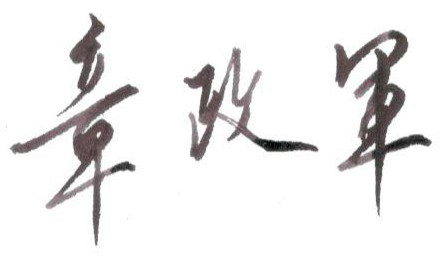 章政軍